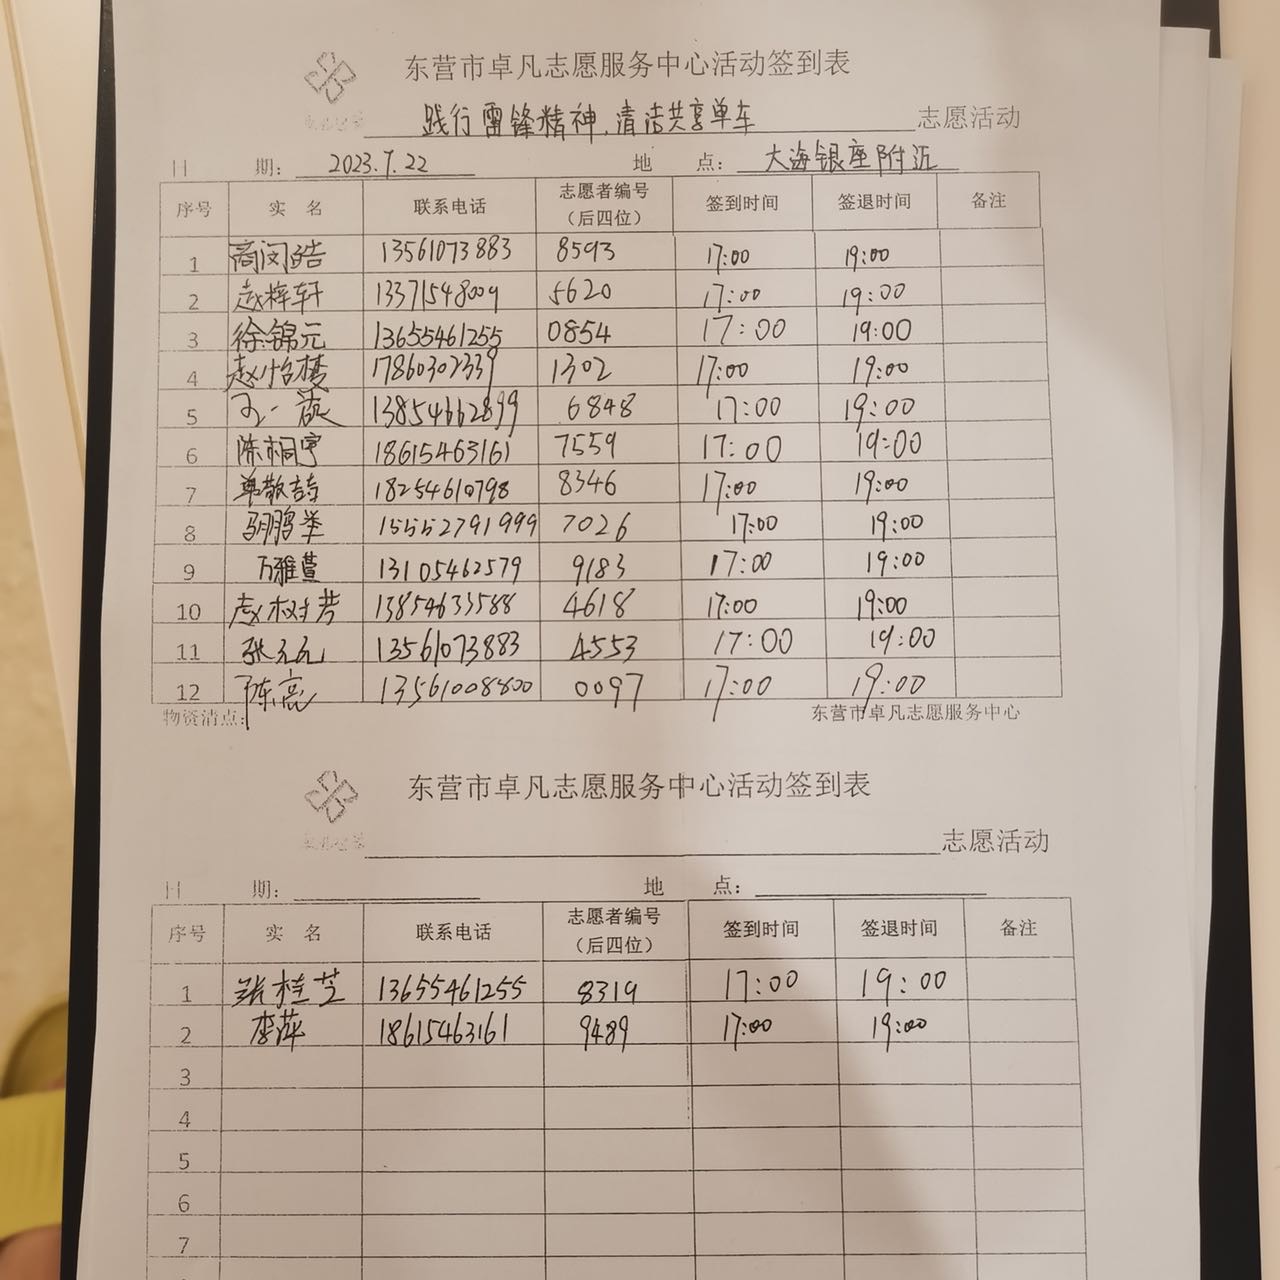 东营市卓凡志愿服务中心活动签到表
践行雷锋精神,清洁共享单车 志愿活动
日 期: 2023.7.22 地 点: 大海银座附近
序号 实 名 联系电话 志愿者编号(后四位) 签到时间 签退时间 备注
1 商闵皓 13561073883 8593 17:00 19:00
2 赵梓轩 13371548009 5620 17:00 19:00
3 徐锦元 13655461255 0854 17:00 19:00
4 赵怡 17860302339 1302 17:00 19:00
5 13854662899 6848 17:00 19:00
6 陈桐宇 18615463161 7559 17:00 19:00
7 单敬诗 18254610798 8346 17:00 19:00
8 胡鹏举 15552791999 7026 17:00 19:00
9 万雅萱 13105462579 9183 17:00 19:00
10 赵树芳 13854633588 4618 17:00 19:00
11 张元元 13561073883 4553 17:00 19:00
12 陈亮 13561008800 0097 17:00 19:00
物资清点: 东营市卓凡志愿服务中心
东营市卓凡志愿服务中心活动签到表
志愿活动
日 期: 地 点:
序号 实 名 联系电话 志愿者编号(后四位) 签到时间 签退时间 备注
1 张桂芝 13655461255 8319 17:00 19:00
2 李萍 18615463161 9489 17:00 19:00
3
4
5
6
7